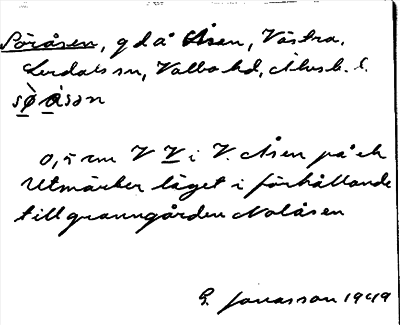 Söråsen, gd å Åsen, Västra,
Lerdals sn, Valbo hd, Älvsb. l.
sø̀råsan
0,5 cm V V i V. Åsen på ek
Utmärker läget i förhållande
till granngården Nolåsen
G. Jonasson 1949